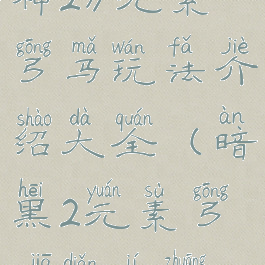 神2元素
gōng mǎ wán fǎ jiè
弓马玩法介
shào dà quán àn
绍大全（暗
hēi yuán sù gōng
黑2元素弓
jiā diǎn jí zhuāng